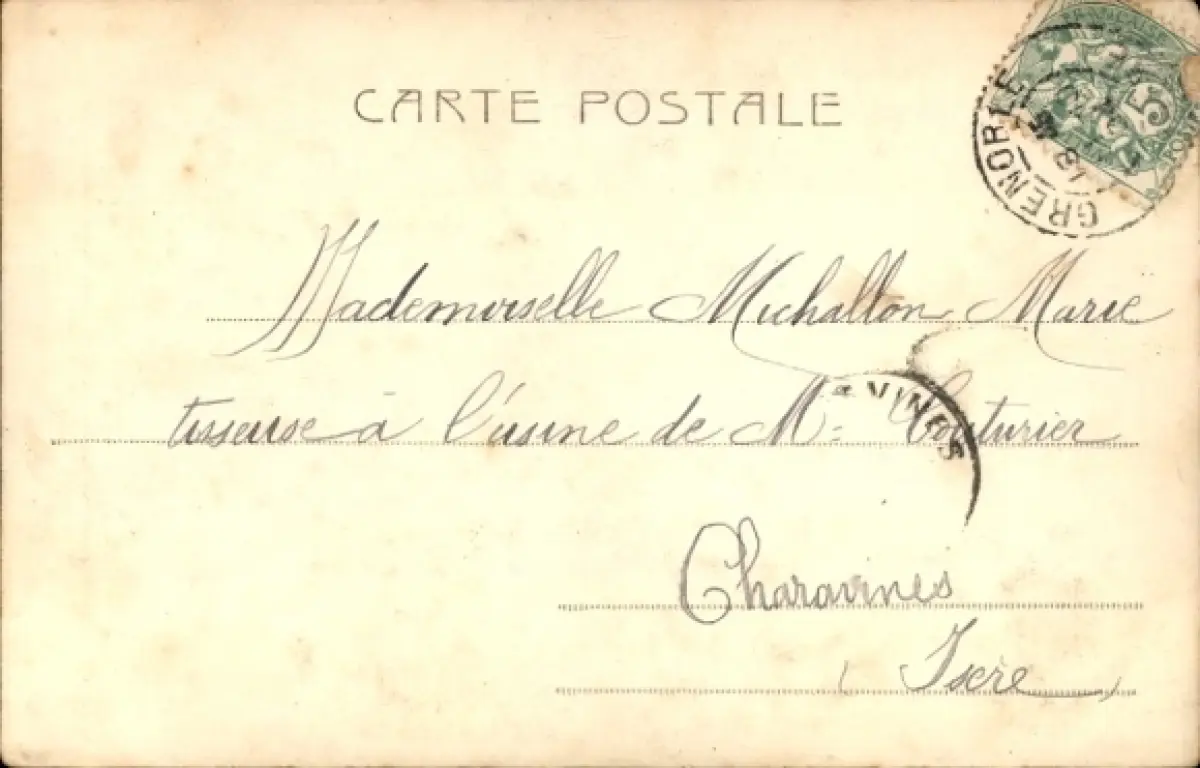 CARTE POSTALE
5
GRENOBLE
Mademoiselle Michallon Marie
tisseuse à l'usine de Mr. Couturier
VINES
Charavines
(Isère)